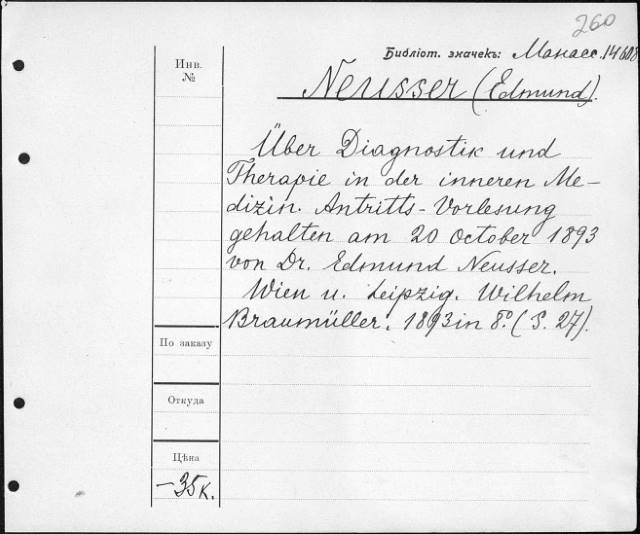 260
Библіот. значекъ: Манасс. 14608
Инв.
№
Neusser (Edmund).
Über Diagnostik und
Therapie in der inneren Me-
dizin. Antritts-Vorlesung
gehalten am 20 October 1893
von Dr. Edmund Neusser.
Wien u. Leipzig. Wilhelm
Braumüller. 1893 in 8º. (S. 27).
По заказу
Откуда
Цѣна
– 35 к.